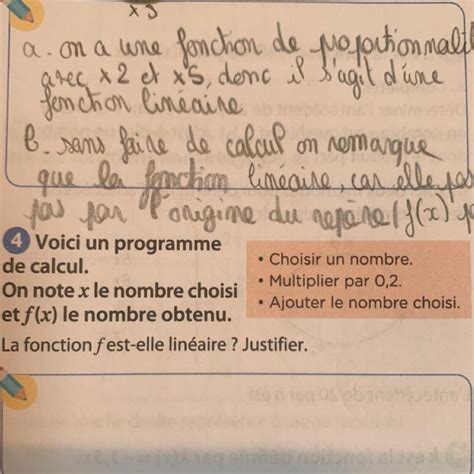 x5
a. on a une fonction de proportionnalit
avec x2 et x5, donc il s'agit d'une
fonction linéaire
b. sans faire de calcul on remarque
que la fonction linéaire, car elle pas
pas par l'origine du repère (f(x)
4 Voici un programme
de calcul.
On note x le nombre choisi
et f(x) le nombre obtenu.
• Choisir un nombre.
• Multiplier par 0,2.
• Ajouter le nombre choisi.
La fonction f est-elle linéaire ? Justifier.